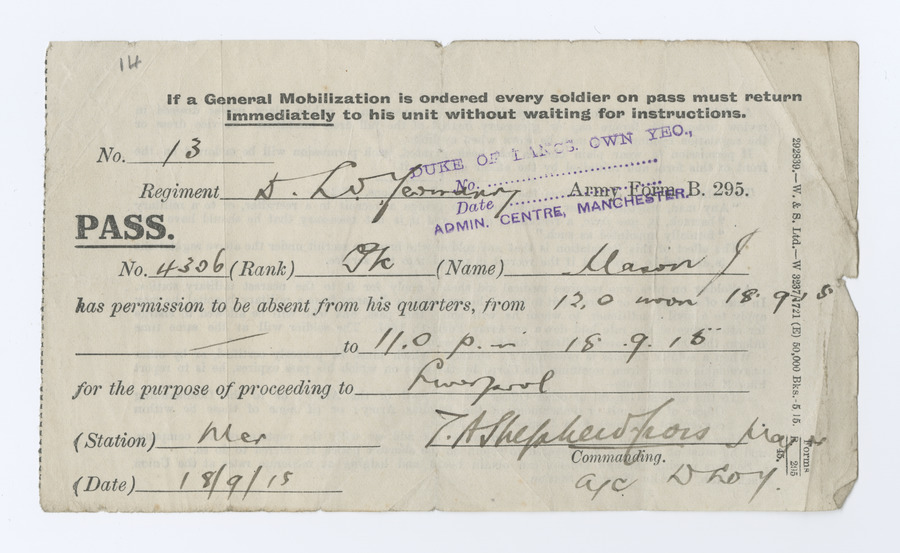 14
If a General Mobilization is ordered every soldier on pass must return
immediately to his unit without waiting for instructions.
No. 13
DUKE OF LANCS. OWN YEO.,
No.
Date
ADMIN. CENTRE, MANCHESTER.
Regiment D. L. O. Yeomanry Army Form B. 295.
PASS.
No. 4306 (Rank) (Name) Mason J
has permission to be absent from his quarters, from 12.0 noon 18.9.15
to 11.0 p.m 18.9.15
for the purpose of proceeding to Liverpool
(Station) T. A Shepherd-Cross Major
Commanding.
(Date) 18/9/15 D L O Y.
292839.—W. & S. Ltd.—W 3237/1721 (E) 50,000 Bks.-5 15.
Forms